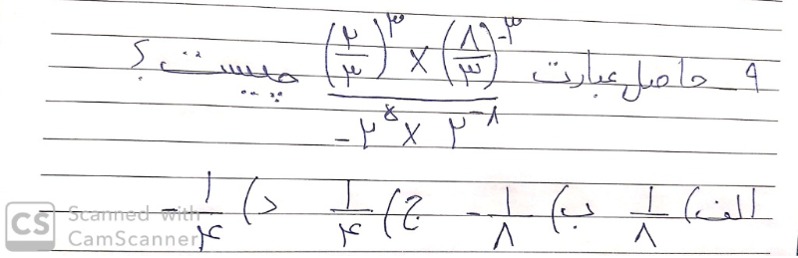 ۹_ حاصل عبارت (۲/۳)^۳ × (۸/۳)^-۳ / -۲^۵ × ۲^-۸ چیست؟
الف) ۱/۸ ب) -۱/۸ ج) ۱/۴ د) -۱/۴
CS Scanned with
CamScanner